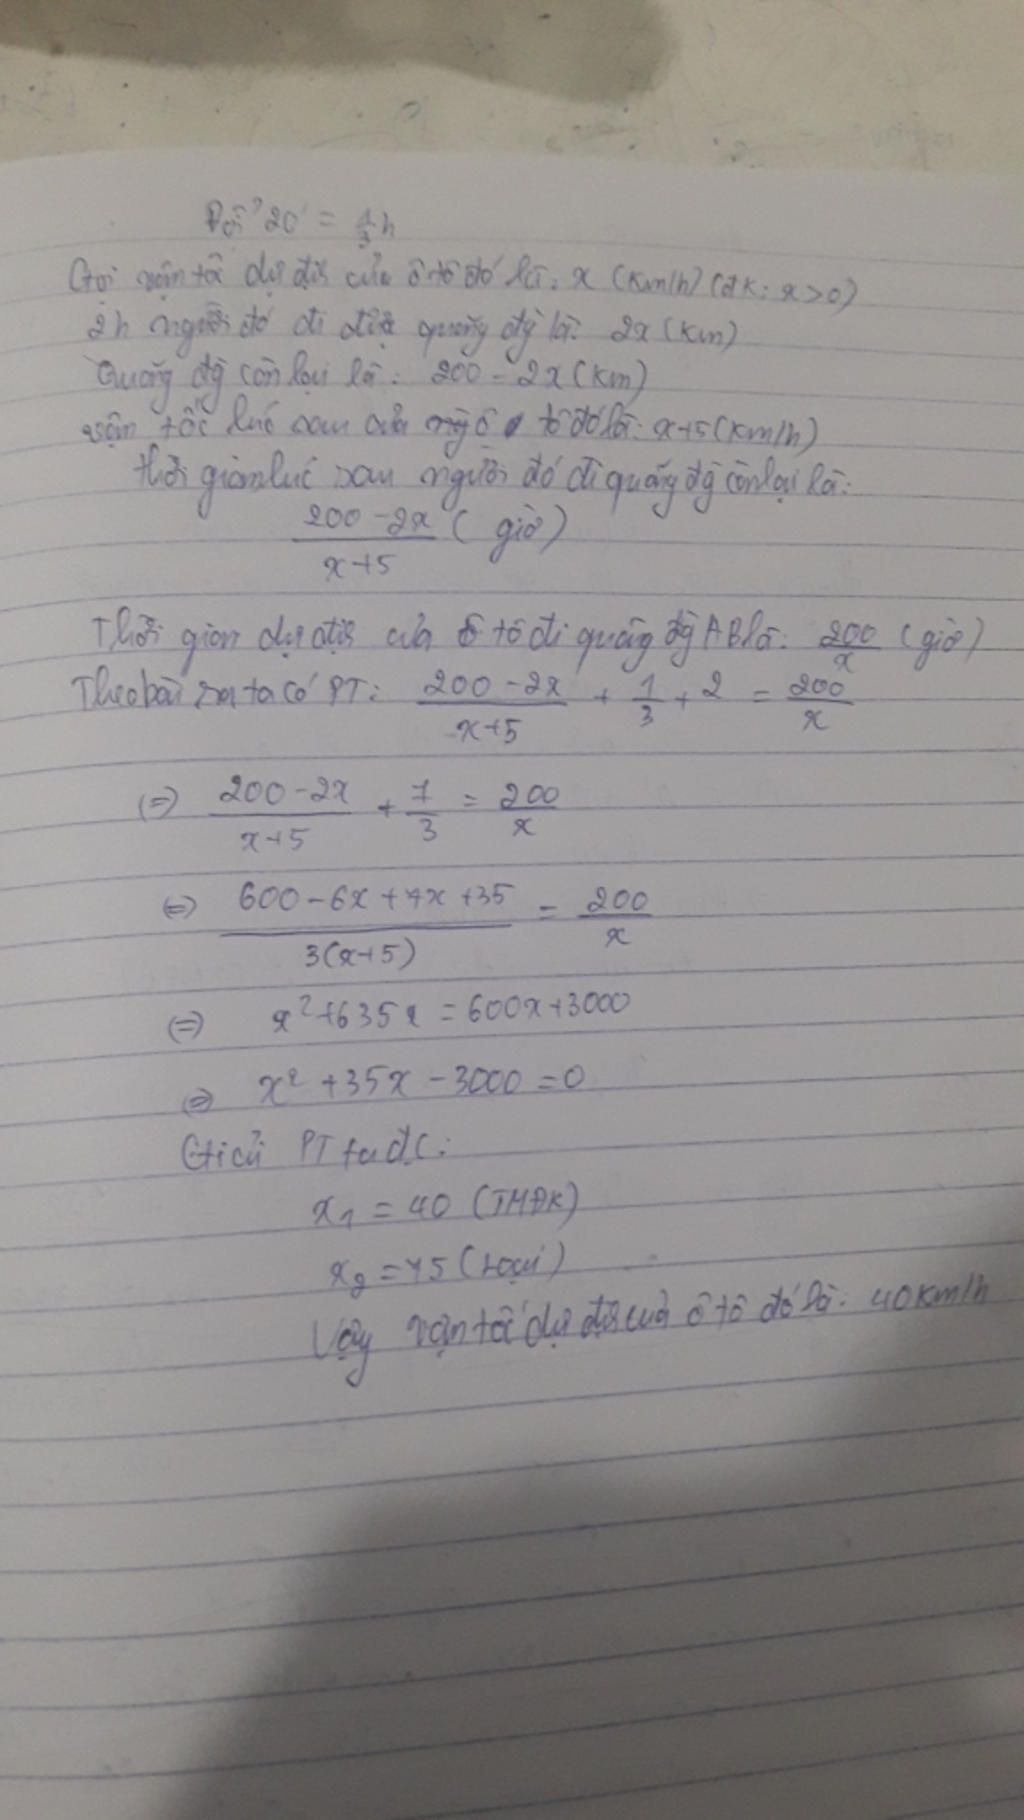 Đổi 20' = 1/3 h
Gọi vận tố dự địh của ô tô đó là: x (km/h) (đk: x>0)
2h người đó đi được quãng đg là: 2x (km)
Quãng đg còn lại là: 200 - 2x (km)
vận tốc lúc sau của ô tô đó là: x+5 (km/h)
thời gian lúc sau người đó đi quãng đg còn lại là:
(200 - 2x)/(x+5) ( giờ)
Thời gian dự địh của ô tô đi quãng đg AB là: 200/x (giờ)
Theo bài ra ta có PT: (200 - 2x)/(x+5) + 1/3 + 2 = 200/x
(=) (200 - 2x)/(x+5) + 7/3 = 200/x
(=) (600 - 6x + 7x + 35)/(3(x+5)) = 200/x
(=) x² + 635x = 600x + 3000
(=) x² + 35x - 3000 = 0
Giải PT ta đc:
x₁ = 40 (TMĐK)
x₂ = 75 (Loại)
Vậy vận tốc dự địh của ô tô đó là: 40 km/h